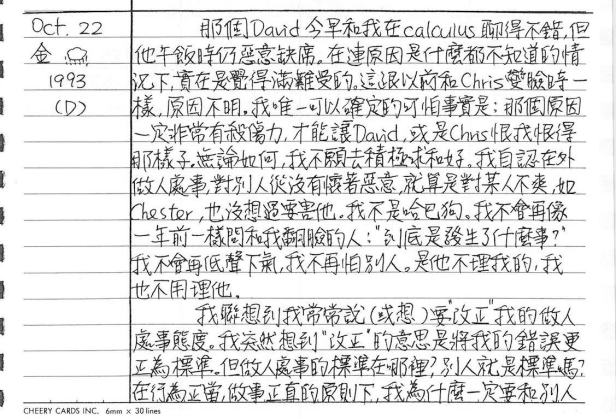 Oct. 22
金
1993
(D)
那個David今早和我在calculus聊得不錯,但
他午飯時仍惡意缺席。在連原因是什麼都不知道的情
況下,實在是覺得滿難受的。這跟以前和Chris變臉時一
樣,原因不明。我唯一可以確定的可怕事實是:那個原因
一定非常有殺傷力,才能讓David,或是Chris恨我恨得
那樣子。無論如何,我不願去積極求和好。我自認在外
做人處事,對別人從沒有懷著惡意,就算是對某人不爽,如
Chester,也沒想過要害他。我不是哈巴狗。我不會再像
一年前一樣問和我翻臉的人:"到底是發生了什麼事?"
我不會再低聲下氣,我不再怕別人。是他不理我的,我
也不用理他。
我聯想到我常常說(或想)要"改正"我的做人
處事態度。我突然想到"改正"的意思是將我的錯誤更
正為標準。但做人處事的標準在哪裡?別人就是標準嗎?
在行為正當,做事正直的原則下,我為什麼一定要和別人
CHEERY CARDS INC. 6mm × 30 lines